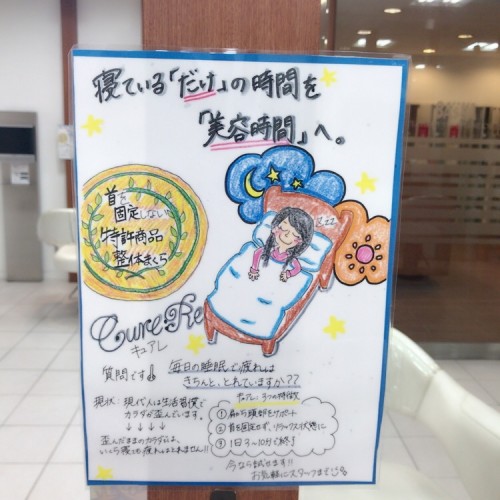 寝ている「だけ」の時間を
「美容時間」へ。
首を
固定しない
特許商品
整体まくら
Zzz
CureRe
キュアレ
質問です!
毎日の睡眠で疲れは
きちんと、とれていますか??
現状:現代人は生活習慣で
カラダが歪んでいます。
↓↓↓↓
歪んだままのカラダでは、
いくら寝ても疲れはとれません!!
キュアレ 3つの特徴
① 肩から頭部をサポート
② 首を固定せず、リラックス状態に
③ 1日3〜10分で終了
今なら試せます!!
お気軽にスタッフまで